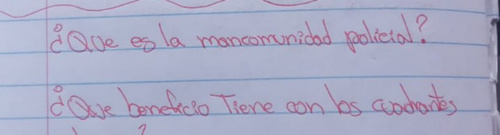 ¿Que es la mancomunidad policial?
¿Que beneficio Tiene con los cuadrantes